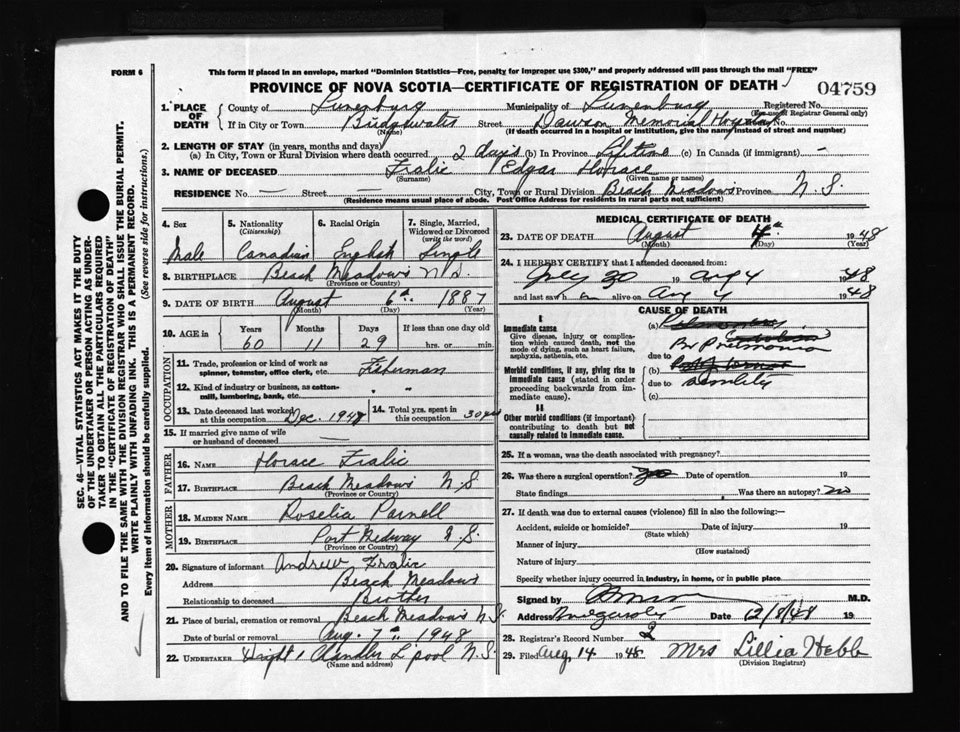 FORM 6
This form if placed in an envelope, marked "Dominion Statistics—Free, penalty for improper use $300," and properly addressed will pass through the mail "FREE"
PROVINCE OF NOVA SCOTIA—CERTIFICATE OF REGISTRATION OF DEATH
04759
1. PLACE OF DEATH County of Lunenburg Municipality of Lunenburg Registered No.
(For use of Registrar General only)
If in City or Town Bridgewater Street Dawson Memorial Hospital No.
(Name) (If death occurred in a hospital or institution, give the name instead of street and number)
2. LENGTH OF STAY (in years, months and days)
(a) In City, Town or Rural Division where death occurred 2 days (b) In Province Lifetime (c) In Canada (if immigrant) —
3. NAME OF DECEASED Fralic Edgar Horace
(Surname) (Given name or names)
RESIDENCE No. — Street — City, Town or Rural Division Beach Meadows Province N.S.
(Residence means usual place of abode. Post Office Address for residents in rural parts not sufficient)
4. Sex 5. Nationality 6. Racial Origin 7. Single, Married, Widowed or Divorced
(Citizenship) (write the word)
Male Canadian English Single
8. BIRTHPLACE Beach Meadows N.S.
(Province or Country)
9. DATE OF BIRTH August 6th 1887
(Month) (Day) (Year)
10. AGE in Years Months Days If less than one day old
60 11 29 hrs. or min.
OCCUPATION
11. Trade, profession or kind of work as spinner, teamster, office clerk, etc. Fisherman
12. Kind of industry or business, as cotton-mill, lumbering, bank, etc. " "
13. Date deceased last worked at this occupation Dec. 1948 14. Total yrs. spent in this occupation 30 yrs
15. If married give name of wife or husband of deceased —
FATHER
16. NAME Horace Fralic
17. BIRTHPLACE Beach Meadows N.S.
(Province or Country)
MOTHER
18. MAIDEN NAME Roselia Parnell
19. BIRTHPLACE Port Medway N.S.
(Province or Country)
20. Signature of informant Andrew Fralic
Address Beach Meadows
Relationship to deceased Brother
21. Place of burial, cremation or removal Beach Meadows N.S.
Date of burial or removal Aug. 7th 1948
22. UNDERTAKER Chandler L'pool N.S.
(Name and address)
MEDICAL CERTIFICATE OF DEATH
23. DATE OF DEATH August 4th 1948
(Month) (Day) (Year)
24. I HEREBY CERTIFY that I attended deceased from:
July 30 19 Aug 4 1948
and last saw him alive on Aug 4 1948
CAUSE OF DEATH
I
Immediate cause
Give disease, injury or complication which caused death, not the mode of dying, such as heart failure, asphyxia, asthenia, etc.
(a) Pulmonary
Br Pneumonia
due to
Morbid conditions, if any, giving rise to immediate cause (stated in order proceeding backwards from immediate cause).
(b)
due to
(c)
II
Other morbid conditions (if important) contributing to death but not causally related to immediate cause.
25. If a woman, was the death associated with pregnancy?
26. Was there a surgical operation? Date of operation 19
State findings Was there an autopsy? no
27. If death was due to external causes (violence) fill in also the following:—
Accident, suicide or homicide? Date of injury 19
(State which)
Manner of injury
(How sustained)
Nature of injury
Specify whether injury occurred in industry, in home, or in public place
Signed by M.D.
Address Date 12/8/48 19
28. Registrar's Record Number 2
29. Filed Aug. 14 1948 Mrs Lillia Hebb
(Division Registrar)
SEC. 46—VITAL STATISTICS ACT MAKES IT THE DUTY
OF THE UNDERTAKER OR PERSON ACTING AS UNDER-
TAKER TO OBTAIN ALL THE PARTICULARS REQUIRED
IN THE "CERTIFICATE OF REGISTRATION OF DEATH"
AND TO FILE THE SAME WITH THE DIVISION REGISTRAR WHO SHALL ISSUE THE BURIAL PERMIT.
WRITE PLAINLY WITH UNFADING INK. THIS IS A PERMANENT RECORD.
Every item of information should be carefully supplied. (See reverse side for instructions.)